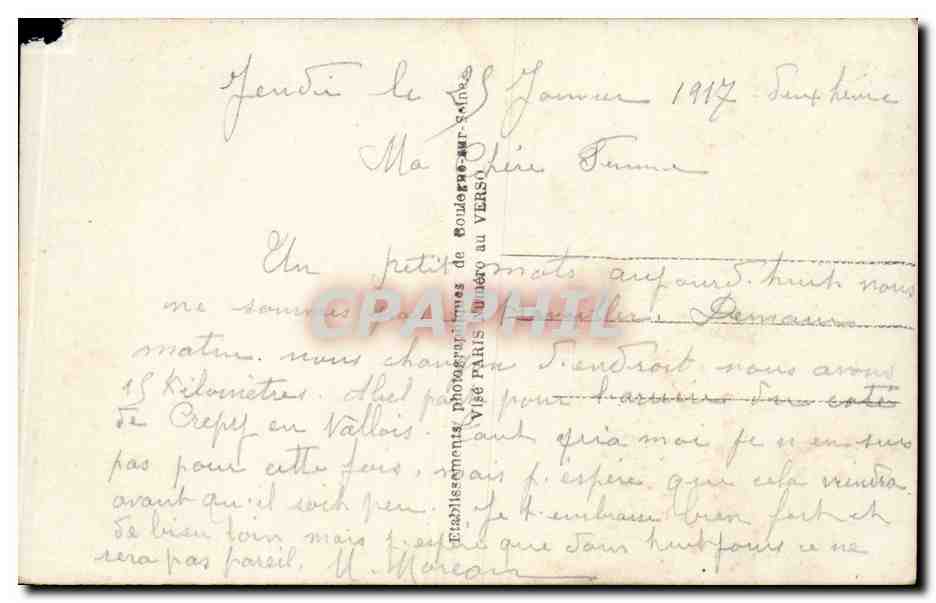 Jeudi le 25 Janvier 1917 deux heure
Ma chère Femme
Un petit mots aujourd'huit nous
ne sommes pas Demain
matin nous changeon d'endroit nous avons
15 Kilomètres. Abel part pour du coté
de Crepy en Vallois. Quant qu'a moi je n'en suis
pas pour cette fois, mais j'espère que cela viendra
avant qu'il soit peu. Je t'embrasse bien fort et
de bien loin mais j'espère que dans huit jours ce ne
sera pas pareil. M. Moreau
Etablissements photographiques de Boulogne-sur-Seine
Visé PARIS Numéro au VERSO
CPAPHIL